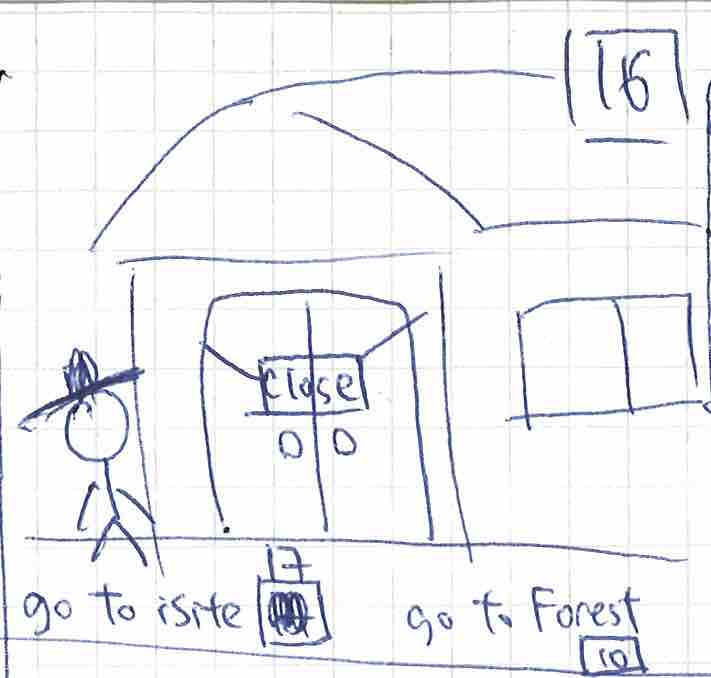 16
close
17
go to isite
go to Forest
10